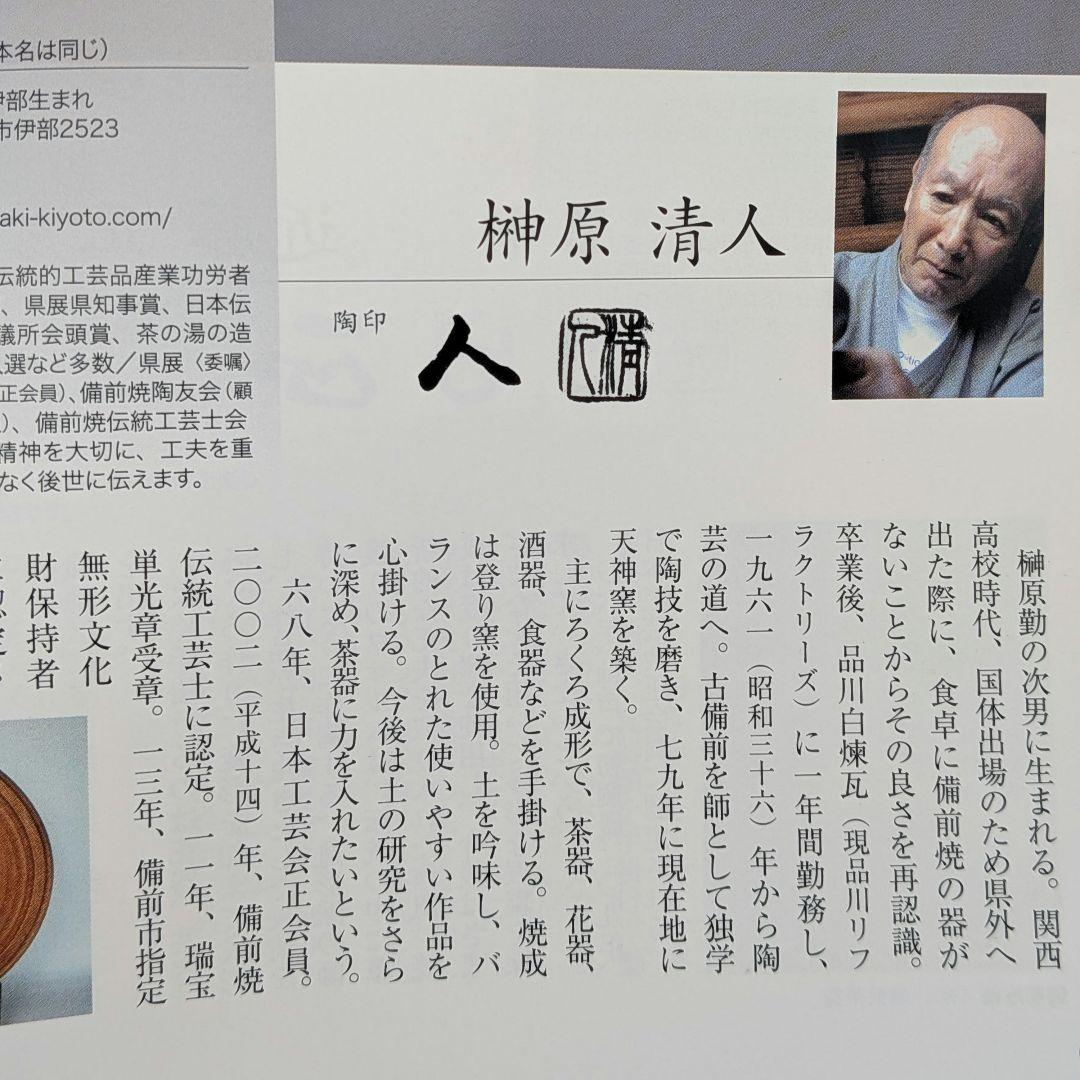 本名は同じ)
伊部生まれ
市伊部2523
aki-kiyoto.com/
伝統的工芸品産業功労者
、県展県知事賞、日本伝
議所会頭賞、茶の湯の造
入選など多数／県展〈委嘱〉
正会員)、備前焼陶友会(顧
)、備前焼伝統工芸士会
精神を大切に、工夫を重
なく後世に伝えます。
榊原 清人
陶印
人
清人
榊原勤の次男に生まれる。関西
高校時代、国体出場のため県外へ
出た際に、食卓に備前焼の器が
ないことからその良さを再認識。
卒業後、品川白煉瓦(現品川リフ
ラクトリーズ)に一年間勤務し、
一九六一(昭和三十六)年から陶
芸の道へ。古備前を師として独学
で陶技を磨き、七九年に現在地に
天神窯を築く。
主にろくろ成形で、茶器、花器、
酒器、食器などを手掛ける。焼成
は登り窯を使用。土を吟味し、バ
ランスのとれた使いやすい作品を
心掛ける。今後は土の研究をさら
に深め、茶器に力を入れたいという。
六八年、日本工芸会正会員。
二〇〇二(平成十四)年、備前焼
伝統工芸士に認定。一一年、瑞宝
単光章受章。一三年、備前市指定
無形文化
財保持者
に認定。